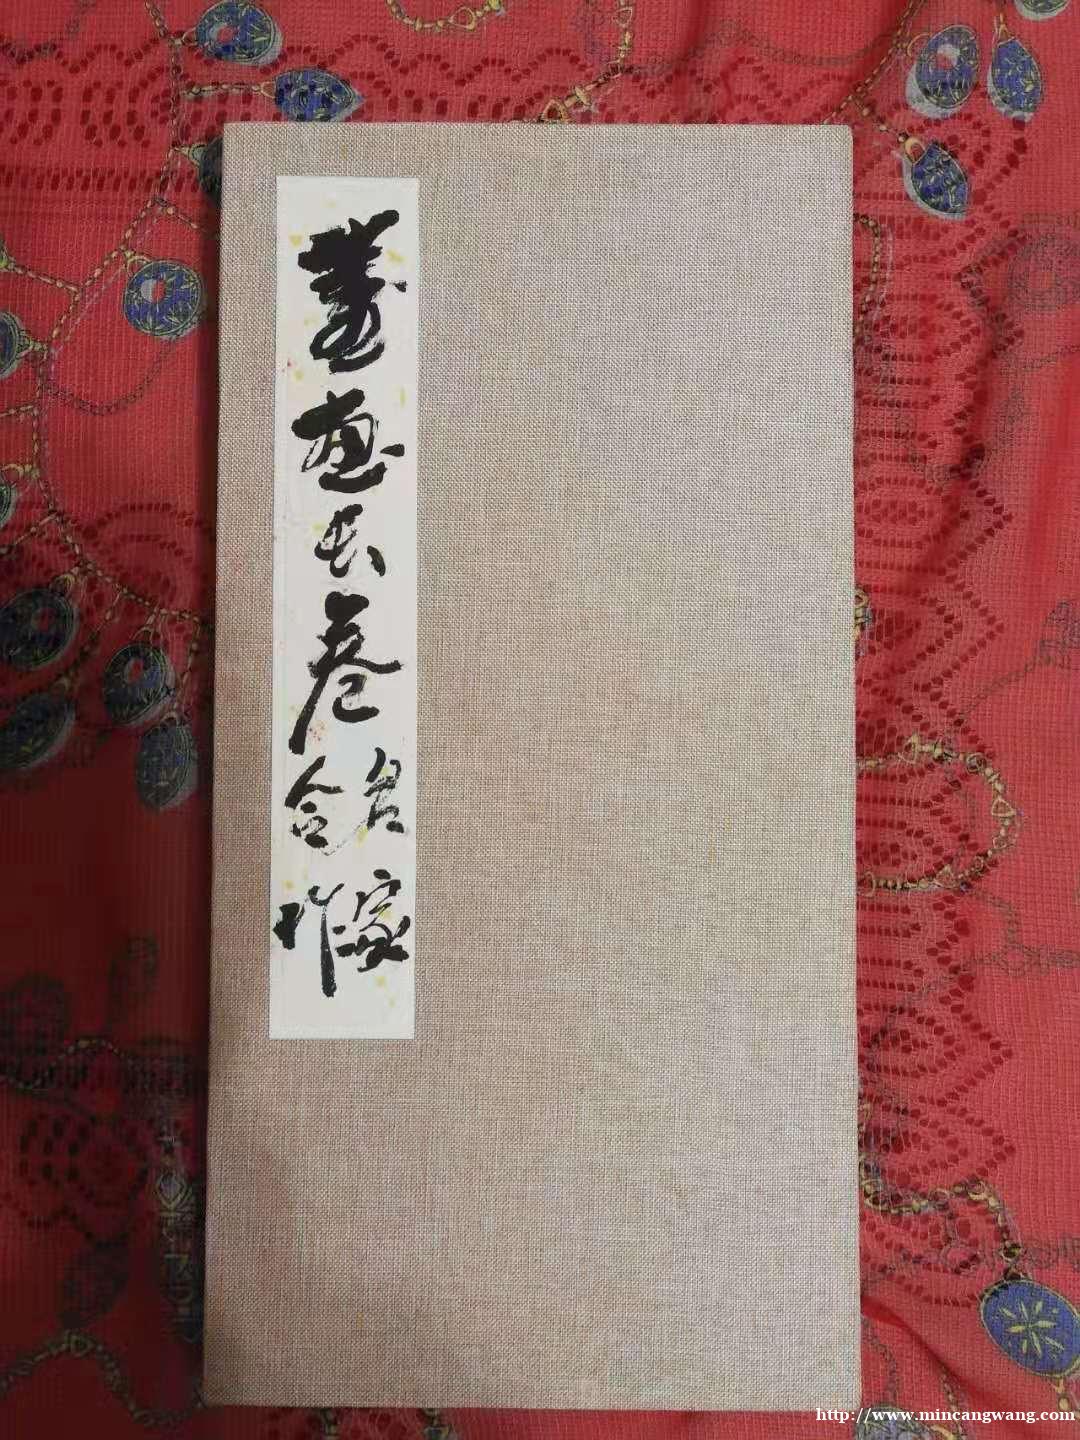 書畫长卷
名家
合作
http://www.mincangwang.com